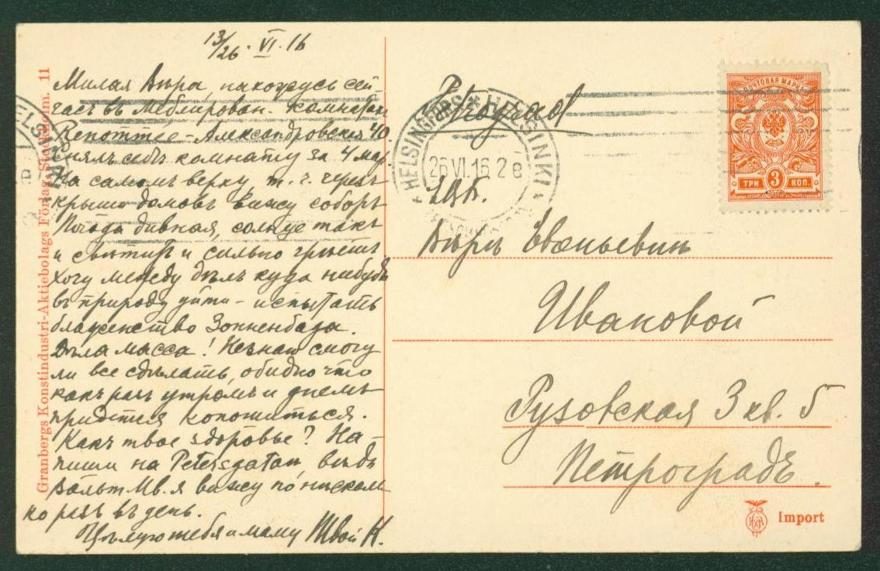 13/26. VI. 16
Милая Вѣра, нахожусь сей-
часъ въ Меблирован. комнатахъ
- Александровская 40
нялъ себѣ комнату за 4 мар.
На самомъ верху, т. ч. черезъ
крыши домовъ вижу соборъ
Погода дивная, солнце такъ
и свѣтитъ и сильно грѣетъ
Хочу между дѣл. куда нибудь
въ природу уйти - испытать
блаженство Зонненбада.
Дѣла масса! Незнаю смогу
ли все сдѣлать, обидно что
какъ разъ утромъ и днемъ
придется копошиться.
Какъ твое здоровье? На-
пиши на Petersgatan, вѣдь
Вальт. Ив. я вижу по нѣсколь
ко разъ въ день.
Цѣлую тебя и маму Твой Н.
Granbergs Konstindustri-Aktiebolags Förlag, Stockholm. 11
Petrograd
HELSINGFORS * HELSINKI
26 VI.16. 2 e
ПОЧТОВАЯ МАРКА
ТРИ 3 КОП.
Вѣрѣ
Ивановой
Рузовская 3 кв. 5
Петроградъ.
Import